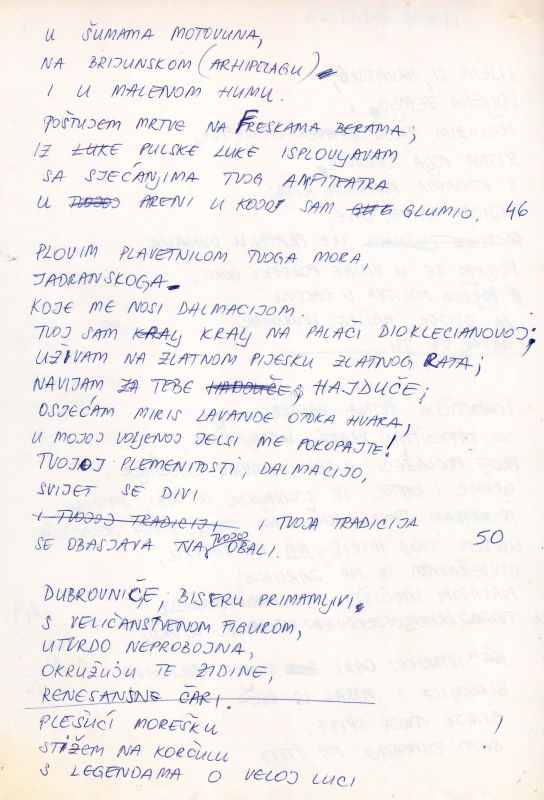 U ŠUMAMA MOTOVUNA,
NA BRIJUNSKOM (ARHIPELAGU)
I U MALENOM HUMU.
POŠTUJEM MRTVE NA FRESKAMA BERAMA;
IZ LUKE PULSKE LUKE ISPLOVLJAVAM
SA SJEĆANJIMA TVOG AMFITEATRA
U TVOJOJ ARENI U KOJOJ SAM GLUMIO. 46
PLOVIM PLAVETNILOM TVOGA MORA,
JADRANSKOGA
KOJE ME NOSI DALMACIJOM.
TVOJ SAM KRALJ KRALJ NA PALAČI DIOKLECIANOVOJ;
UŽIVAM NA ZLATNOM PIJESKU ZLATNOG RATA;
NAVIJAM ZA TEBE HAJDUČE; HAJDUČE;
OSJEĆAM MIRIS LAVANDE OTOKA HVARA,
U MOJOJ VOLJENOJ JELSI ME POKOPAJTE!
TVOJOJ PLEMENITOSTI, DALMACIJO,
SVIJET SE DIVI
I TVOJOJ TRADICIJI I TVOJA TRADICIJA
SE OBASJAVA TVOJOJ OBALI. 50
DUBROVNIČE, BISERU PRIMAMLJIVI,
S VELIČANSTVENOM FIGUROM,
UTVRDO NEPROBOJNA,
OKRUŽUJU TE ZIDINE,
RENESANSNE ČARI.
PLEŠUĆI MOREŠKU
STIŽEM NA KORČULU
S LEGENDAMA O VELOJ LUCI